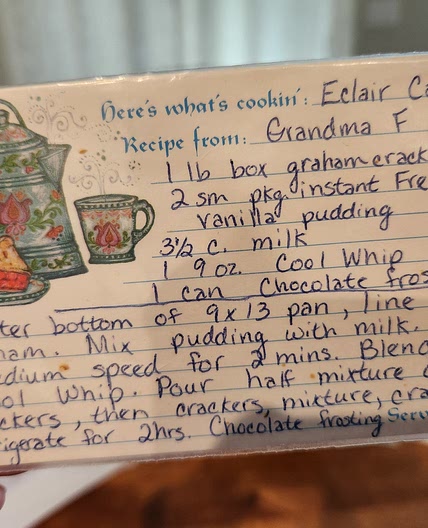 Here's what's cookin': Eclair Ca
Recipe from: Grandma F
1 lb box graham crack
2 sm pkg instant Fre
vanilla pudding
3 1/2 c. milk
1 9 oz. Cool Whip
1 can Chocolate fros
ter bottom of 9 x 13 pan, line
ham. Mix pudding with milk.
dium speed for 2 mins. Blend
ol Whip. Pour half mixture
ckers, then crackers, mixture, cra
igerate for 2hrs. Chocolate frosting Serv